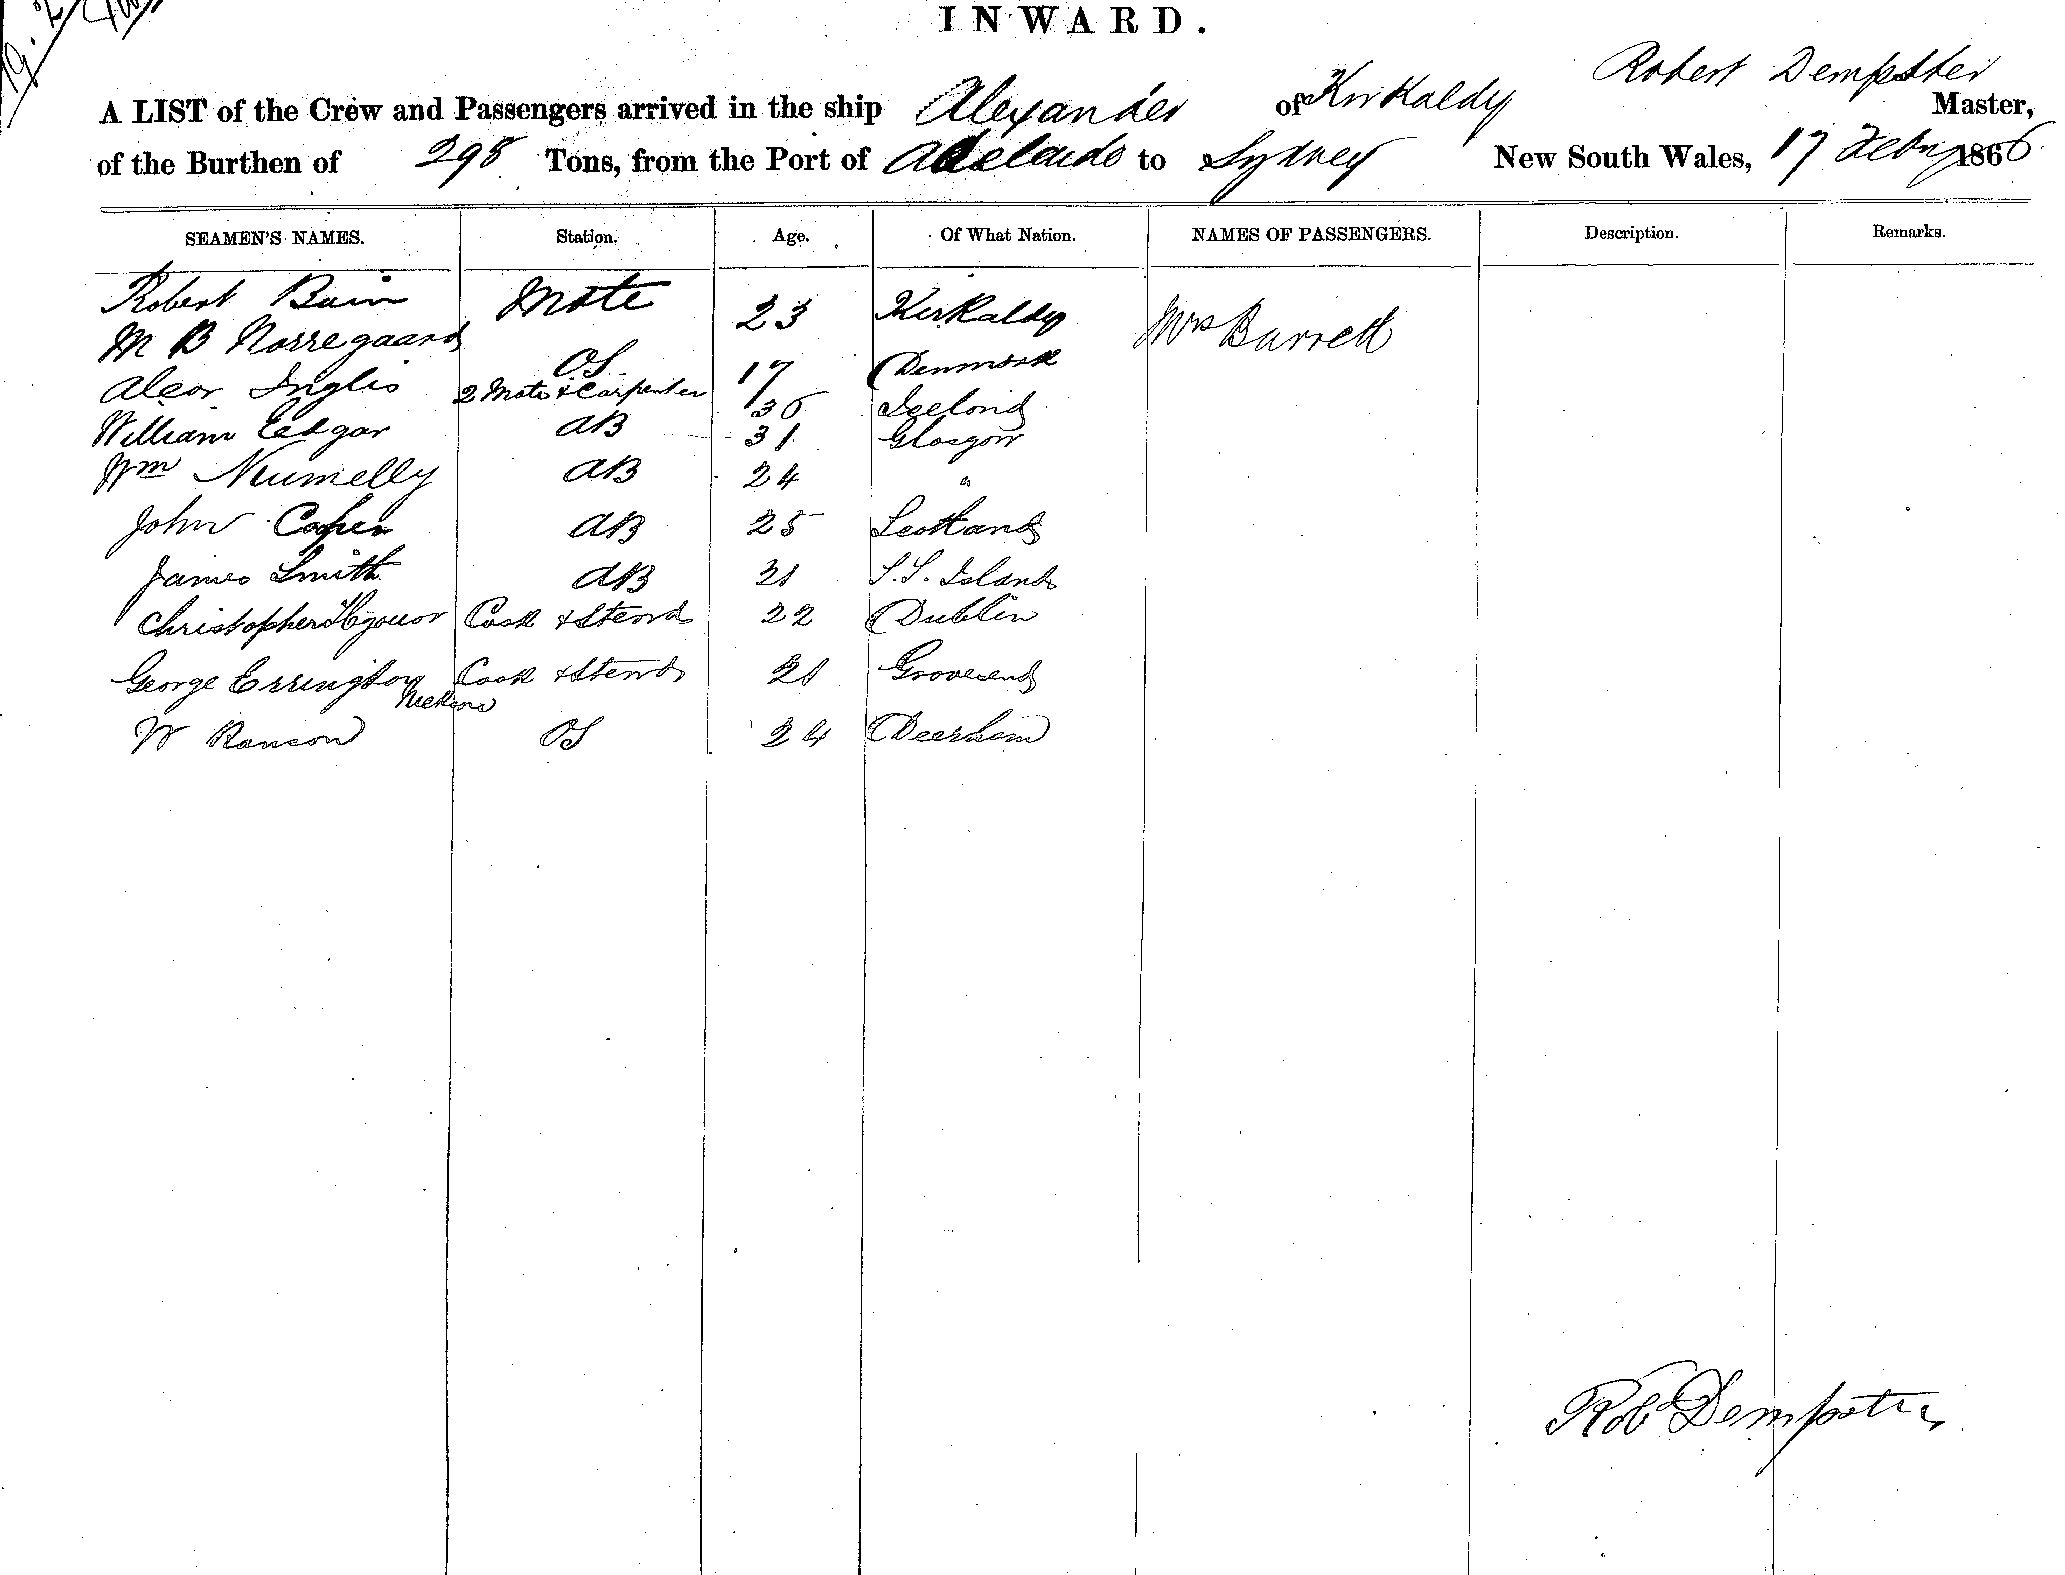 INWARD.
Robert Dempster
A LIST of the Crew and Passengers arrived in the ship Alexander of Kirkaldy Master,
of the Burthen of 298 Tons, from the Port of Adelaide to Sydney New South Wales, 17 Feby 1866
SEAMEN'S NAMES. Station. Age. Of What Nation. NAMES OF PASSENGERS. Description. Remarks.
Robert Bain Mate 23 Kirkaldy Mrs Barrett
M B Norregaard OS 17 Denmark
Inglis 2 Mate & Carpenter 36
William Edgar AB 31 Glasgow
Wm AB 24 "
John Cooper AB 25 Scotland
James Smith AB 21 S.S. Islands
Christopher Cook & Steward 22 Dublin
George Errington Cook & Steward 21 Gravesend
W Ranson OS 24
Rob Dempster